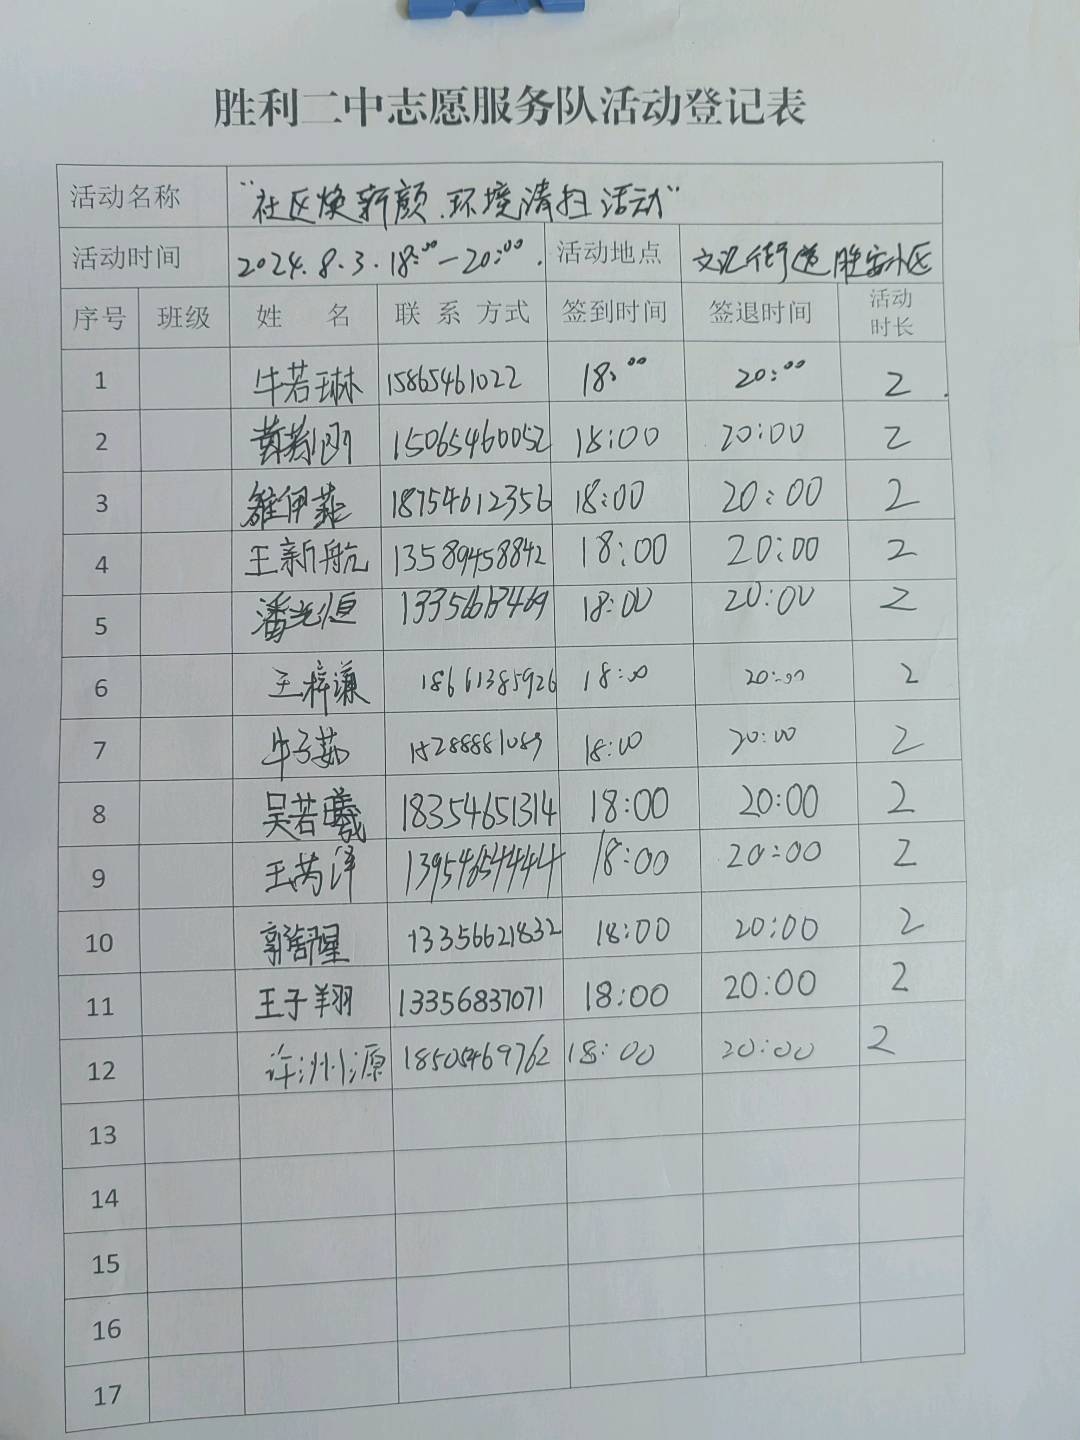 胜利二中志愿服务队活动登记表
活动名称 "社区焕新颜.环境清扫活动"
活动时间 2024.8.3.18:00—20:00. 活动地点 文汇街道胜安小区
序号 班级 姓 名 联 系 方式 签到时间 签退时间 活动时长
1 牛若琳 15865461022 18:00 20:00 2
2 15065460052 18:00 20:00 2
3 雒伊菲 18754612356 18:00 20:00 2
4 王新航 13589458842 18:00 20:00 2
5 潘光恒 18:00 20:00 2
6 王梓谦 18661385926 18:00 20:00 2
7 牛子茹 18288881089 18:00 20:00 2
8 吴若曦 18354651314 18:00 20:00 2
9 王芮泽 13954654444 18:00 20:00 2
10 13356621832 18:00 20:00 2
11 王子翔 13356837071 18:00 20:00 2
12 许洲源 18505469762 18:00 20:00 2
13
14
15
16
17